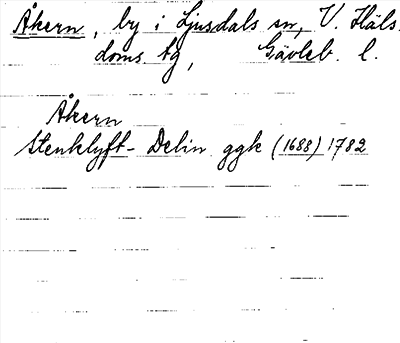 Åkern, by i Ljusdals sn, V. Häls.
doms. tg, Gävleb. l.
Åkern
Stenklyft- Delin ggk (1688) 1782